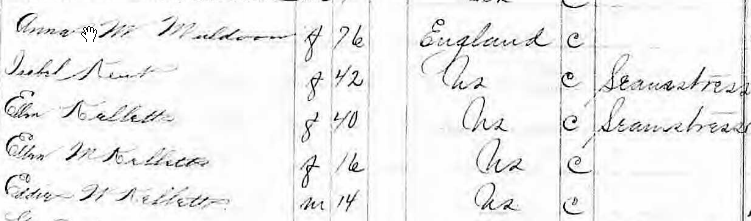 Anna M Muldoon f 76 England c
Isabel Kent f 42 Us c Seamstress
Ellen Kelletts f 40 Us c Seamstress
Ellen M Kelletts f 16 Us c
Eddie W Kelletts m 14 Us c